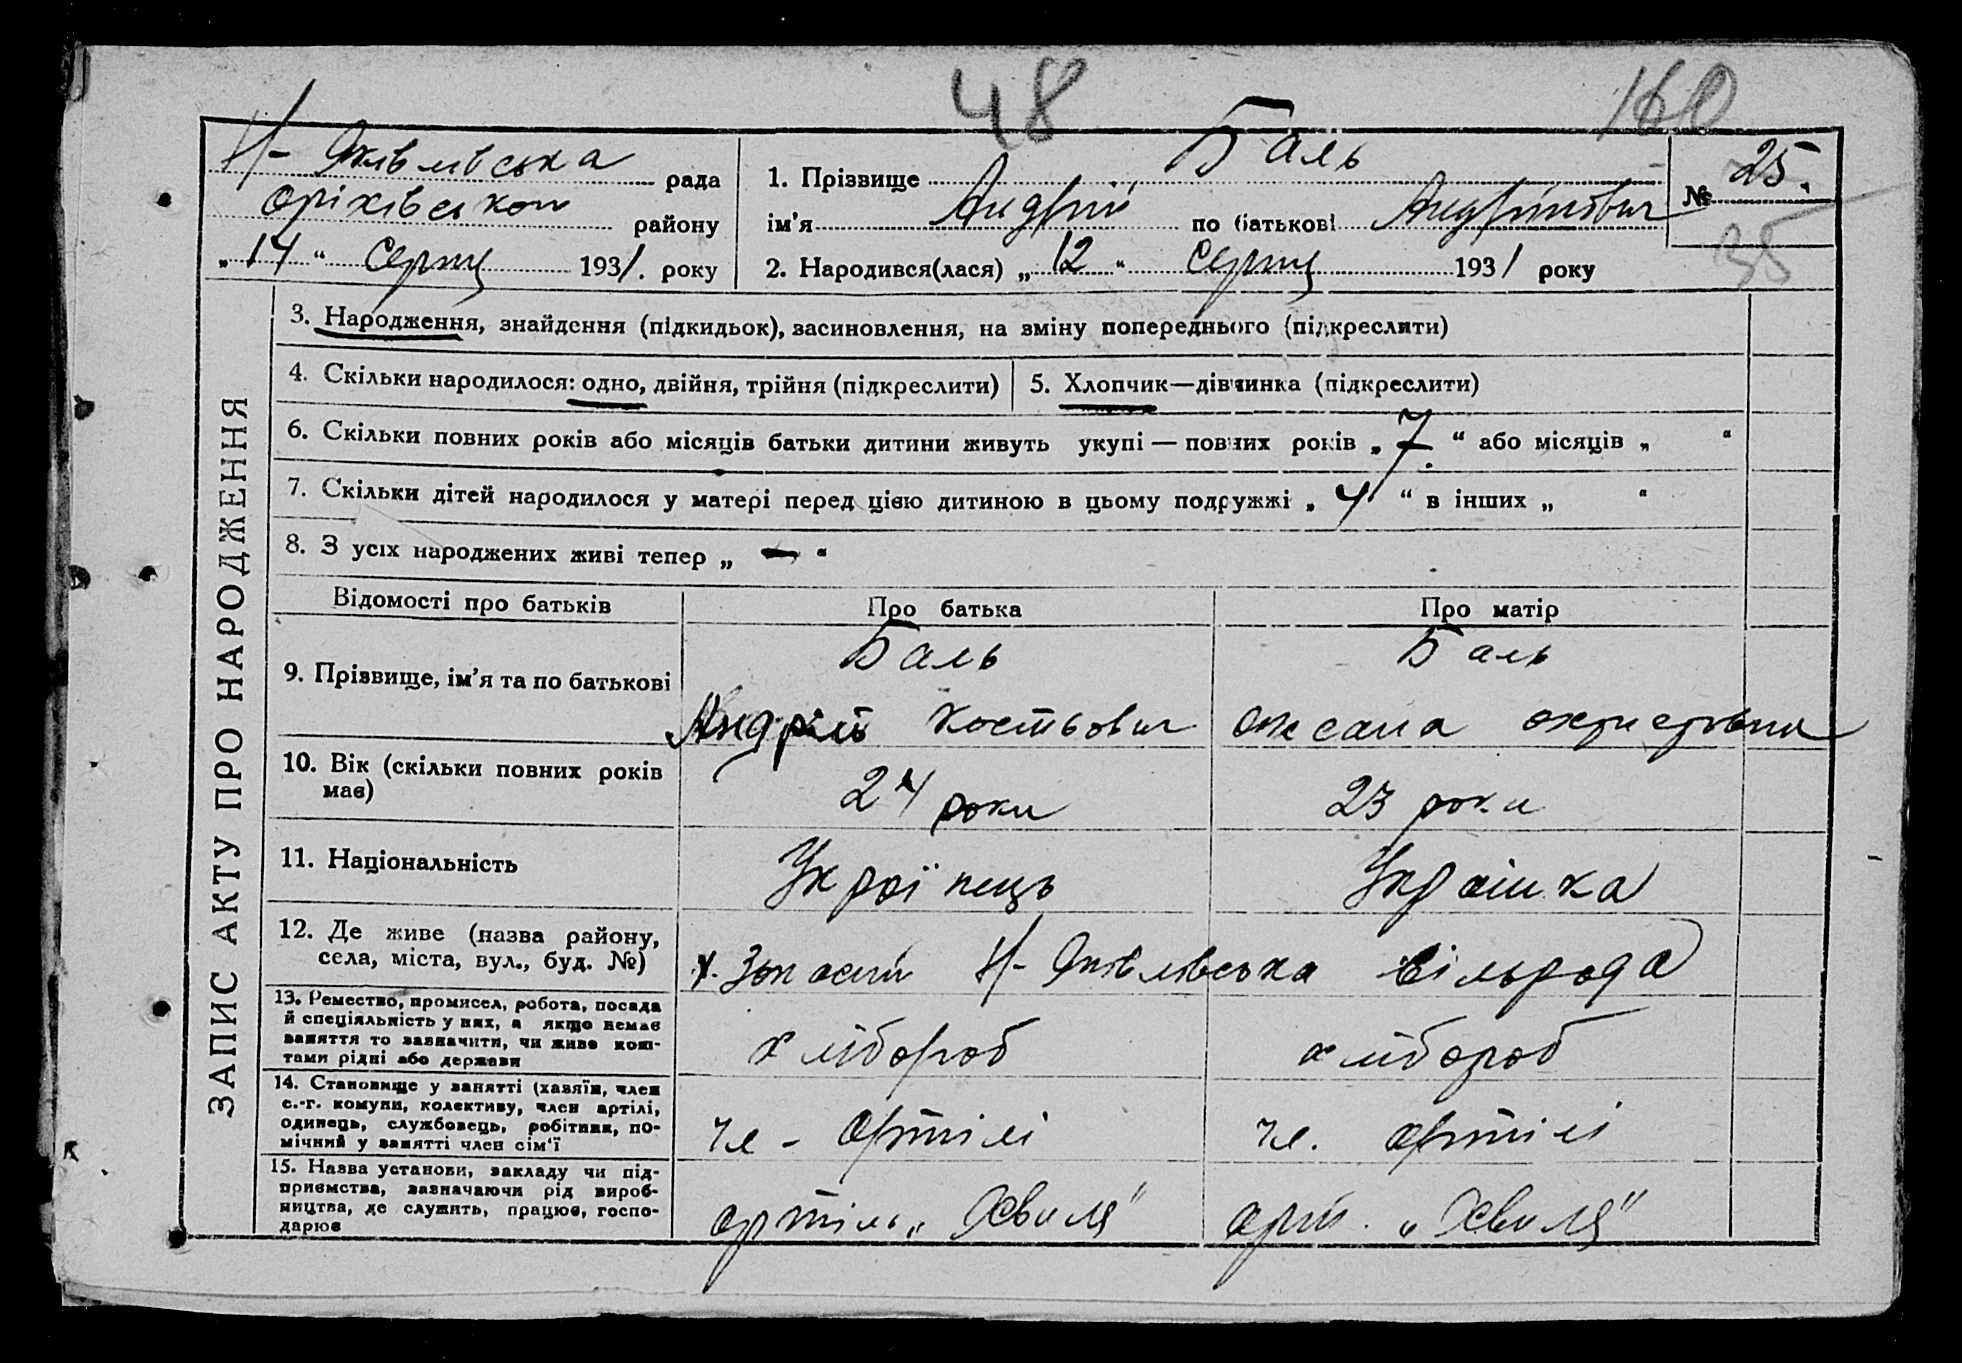 48
160
Н-Яківлівська рада
Оріхівського району
„14“ Серпня 1931. року
1. Прізвище Баль
ім’я Андрій по батькові Андрійович
2. Народився(лася) „12“ Серпня 1931 року
№ 25.
35
ЗАПИС АКТУ ПРО НАРОДЖЕННЯ
3. Народження, знайдення (підкидьок), засиновлення, на зміну попереднього (підкреслити)
4. Скільки народилося: одно, двійня, трійня (підкреслити)
5. Хлопчик—дівчинка (підкреслити)
6. Скільки повних років або місяців батьки дитини живуть укупі — повних років „7.“ або місяців „ “
7. Скільки дітей народилося у матері перед цією дитиною в цьому подружжі „4“ в інших „ “
8. З усіх народжених живі тепер „ — “
Відомості про батьків
Про батька
Про матір
9. Прізвище, ім’я та по батькові
Баль
Андрій Костьович
Баль
Оксана
10. Вік (скільки повних років
має)
24 роки
23 роки
11. Національність
Українець
Українка
12. Де живе (назва району,
села, міста, вул., буд. №)
Н-Яківлівська сільрада
13. Ремество, промисел, робота, посада
й спеціяльність у них, а якщо немає
заняття то зазначити, чи живе кош-
тами рідні або держави
хлібороб
хлібороб
14. Становище у занятті (хазяїн, член
с.-г. комуни, колективу, член артілі,
одинець, службовець, робітник, по-
мічний у занятті член сім’ї
чл - артілі
чл. артілі
15. Назва установи, закладу чи під-
приємства, зазначаючи рід вироб-
ництва, де служить, працює, госпо-
дарює
артіль „Хвиля“
арт. „Хвиля“